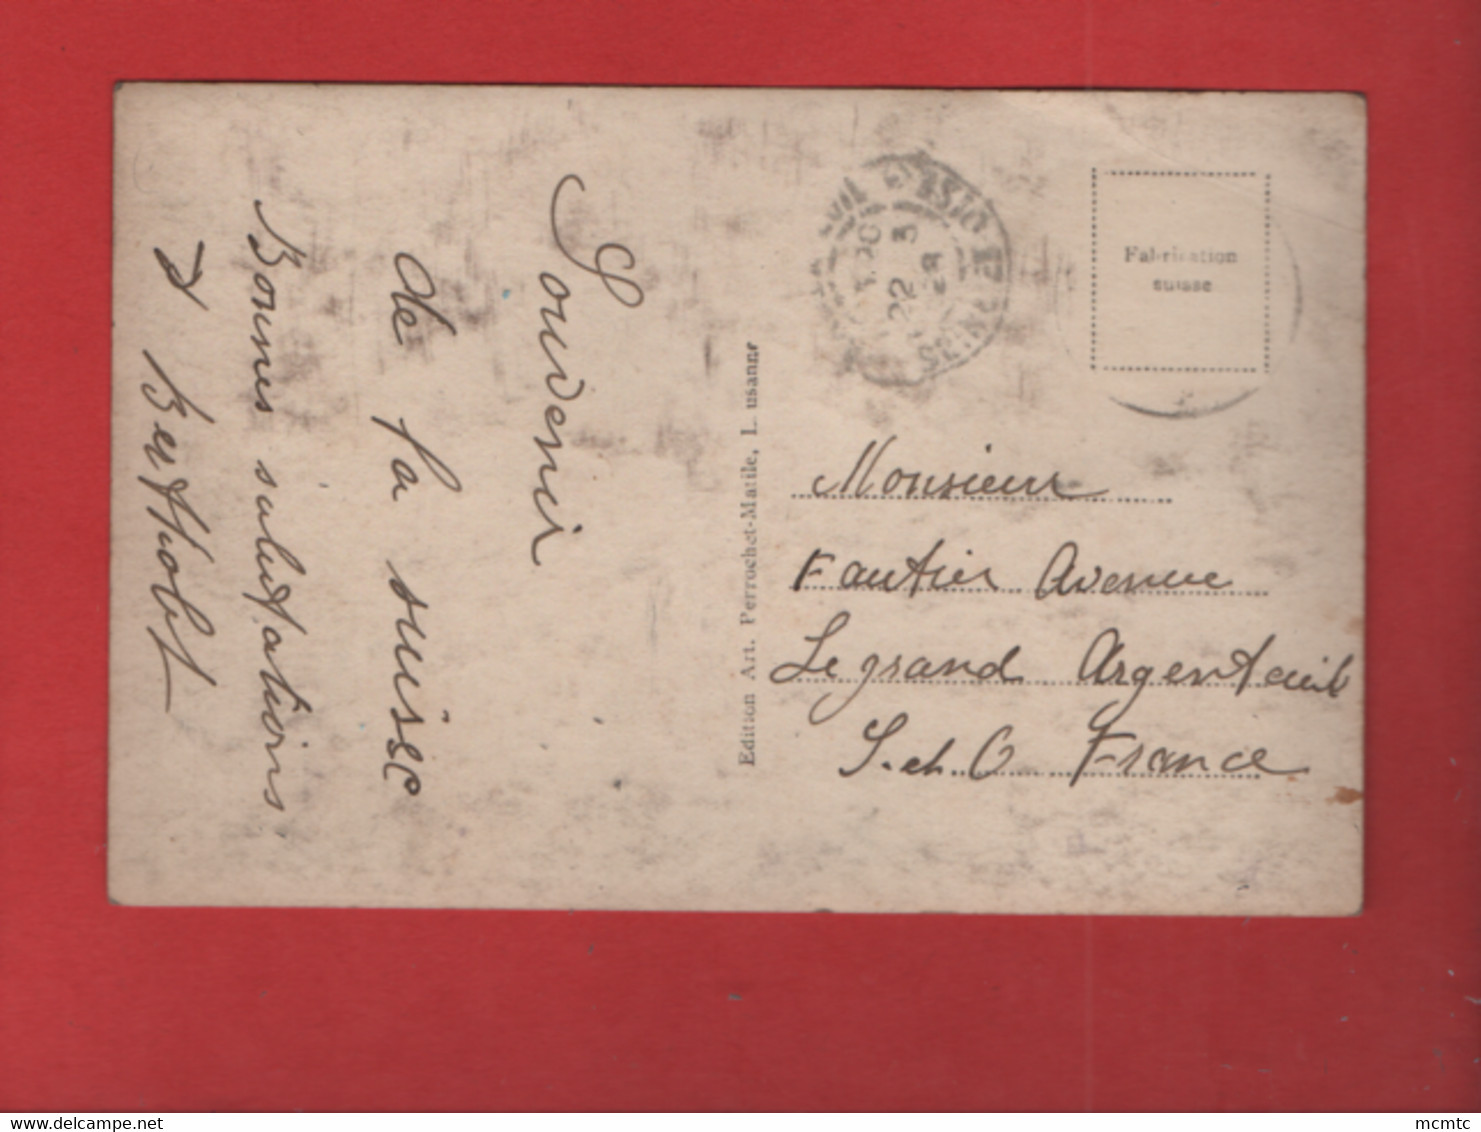 Souvenir
de la suisse
Bonnes salutations
Berthobt
Edition Art. Perrochet-Matile, L usanne
22 3
28
Fabrication
suisse
Monsieur
Fautier Avenue
Le grand Argenteuil
S. et. O France
mcmtc